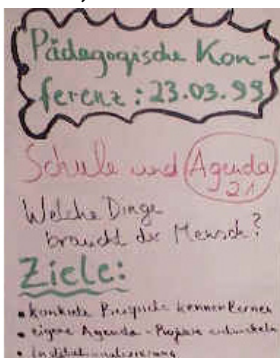 Pädagogische Kon-
ferenz: 23.03.99
Schule und Agenda
21
Welche Dinge
braucht der Mensch?
Ziele:
• konkrete Beispiele kennenlernen
• eigene Agenda-Projekte entwickeln
• Institutionalisierung